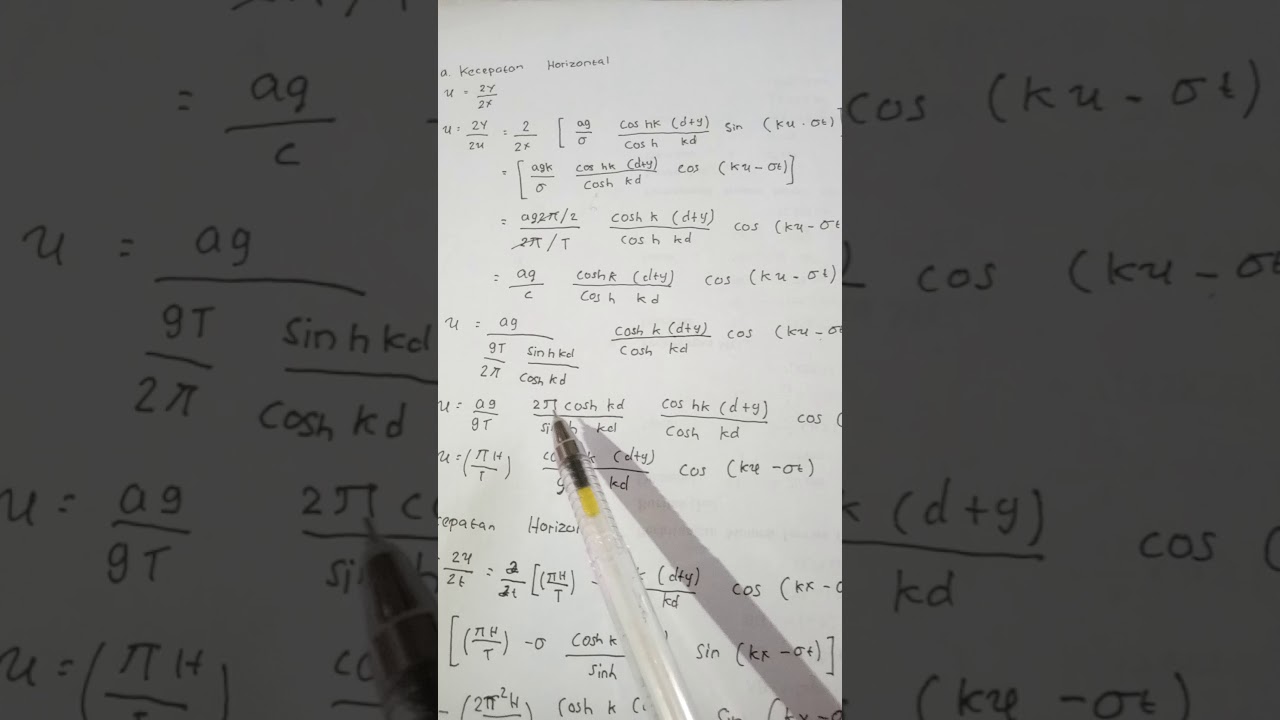 a. Kecepatan Horizontal
u = 2Y/2x
u = 2Y/2u = 2/2x [ ag/σ cos hk (d+y)/cos h kd sin (ku - σt)]
= [ agk/σ cos hk (d+y)/cosh kd cos (ku - σt)]
= ag2π/2 / 2π/T cosh k (d+y)/cos h kd cos (ku - σt
= ag/c cosh k (d+y)/cos h kd cos (ku - σt)
u = ag / gT/2π sin h kd/cosh kd cosh k (d+y)/cosh kd cos (ku - σt
u = ag/gT 2π cosh kd/sinh kd cos hk (d+y)/cosh kd cos (
u = (πH/T) k (d+y)/kd cos (ku - σt)
cepatan Horizo
2u/2t = 2/2t [(πH/T) k (d+y)/kd cos (kx - σ
[(πH/T) -σ cosh k/sinh sin (kx - σt)]
(2π²H cosh k ( sin (kx - σ